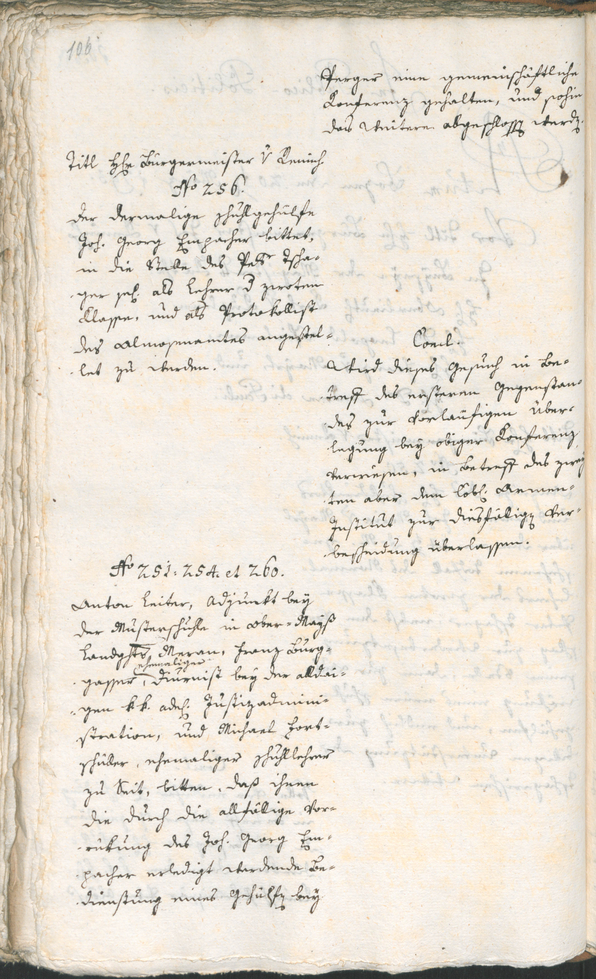 106
Perger eine gemeinschäftliche
Konferenz gehalten, und sohin
das Weitere abgeschlossen werde.
Titl HHr. Bürgermeister v Remich
No 256.
Der dermalige Schulgehülfe
Joh. Georg Empacher bittet,
in die Stelle des Peter Tscha-
ger sel. als Lehrer d zwoten
Classe, und als Protokollist
des Almosenamtes angestel-
let zu werden.
Concl.
Wird dieses Gesuch in Be-
treff des ersteren Gegenstan-
des zur vorläufigen Über-
legung bey obiger Konferenz
verwiesen, in Betreff des zwey-
ten aber dem löbl. Armen-
Institut zur diesfälligen Ver-
bescheidung überlassen.
No 251. 254. et 260.
Anton Leiter, Adjunkt bey
der Musterschule in Ober-Mays
Landgts. Meran, Franz Burg-
gasser, ehemaliger Diurnist bey der alldai-
gen kk. adel. Justizadmini-
stration, und Michael Hort-
schuler, ehemaliger Schullehrer
zu Seit, bitten, daß ihnen
die durch die allfällige Vor-
rückung des Joh. Georg Em-
pacher erledigt werdende Be-
dienstung eines Gehülfen bey